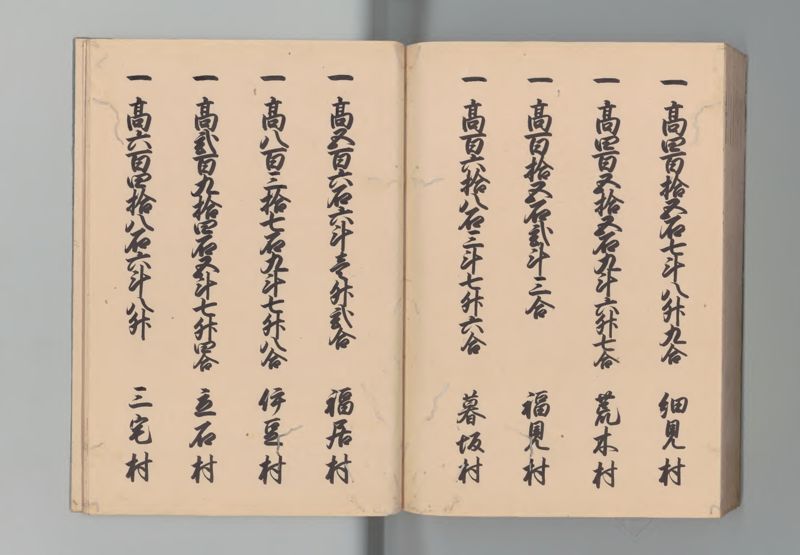 一 高四百拾五石七斗八升九合 細見村
一 高四百五拾五石九斗六升七合 荒木村
一 高百拾五石弐斗三合 福見村
一 高百六拾八石三斗七升六合 暮坂村
一 高五百六石六斗壱升弐合 福居村
一 高八百三拾七石九斗七升八合 伊豆村
一 高弐百九拾四石五斗七升四合 立石村
一 高六百四拾八石六斗八升 三宅村